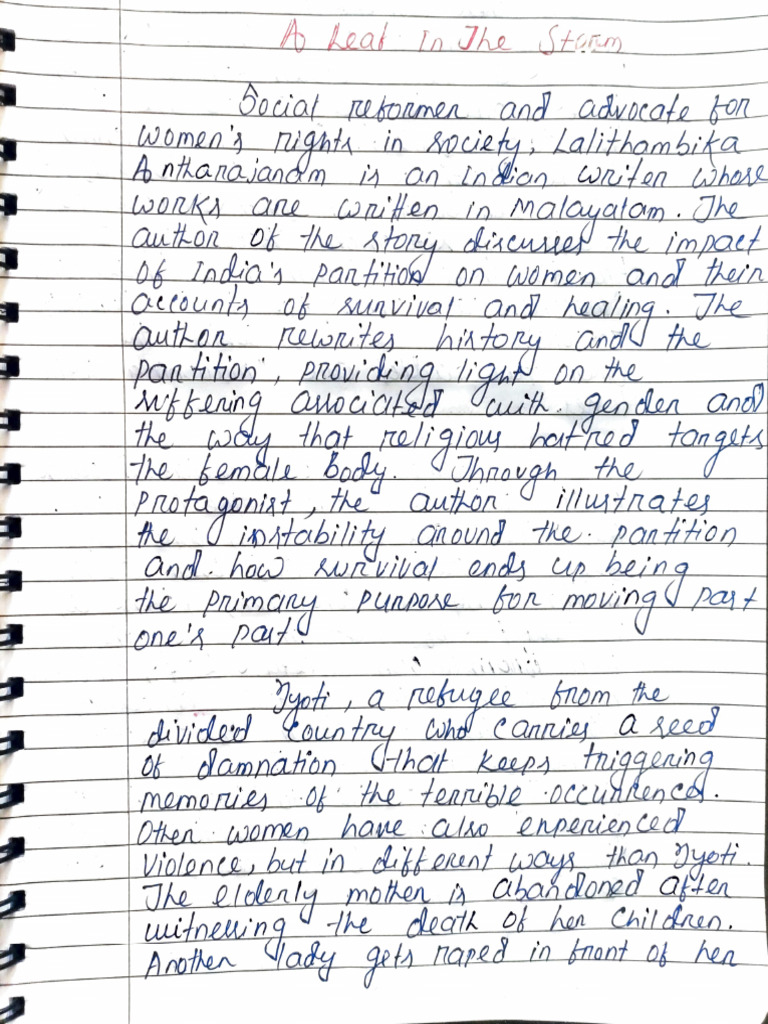 A Leaf In The Storm
Social reformer and advocate for
women's rights in society, Lalithambika
Antharajanam is an Indian writer whose
works are written in Malayalam. The
author of the story discusses the impact
of India's partition on women and their
accounts of survival and healing. The
author rewrites history and the
partition, providing light on the
suffering associated with gender and
the way that religious hatred targets
the female body. Through the
protagonist, the author illustrates
the instability around the partition
and how survival ends up being
the primary purpose for moving past
one's past.
Jyoti, a refugee from the
divided country who carries a seed
of damnation that keeps triggering
memories of the terrible occurrences.
Other women have also experienced
violence, but in different ways than Jyoti.
The elderly mother is abandoned after
witnessing the death of her children.
Another lady gets raped in front of her